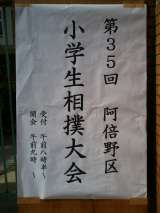 第35回 阿倍野区
小学生相撲大会
受付 午前八時半~
開会 午前九時~